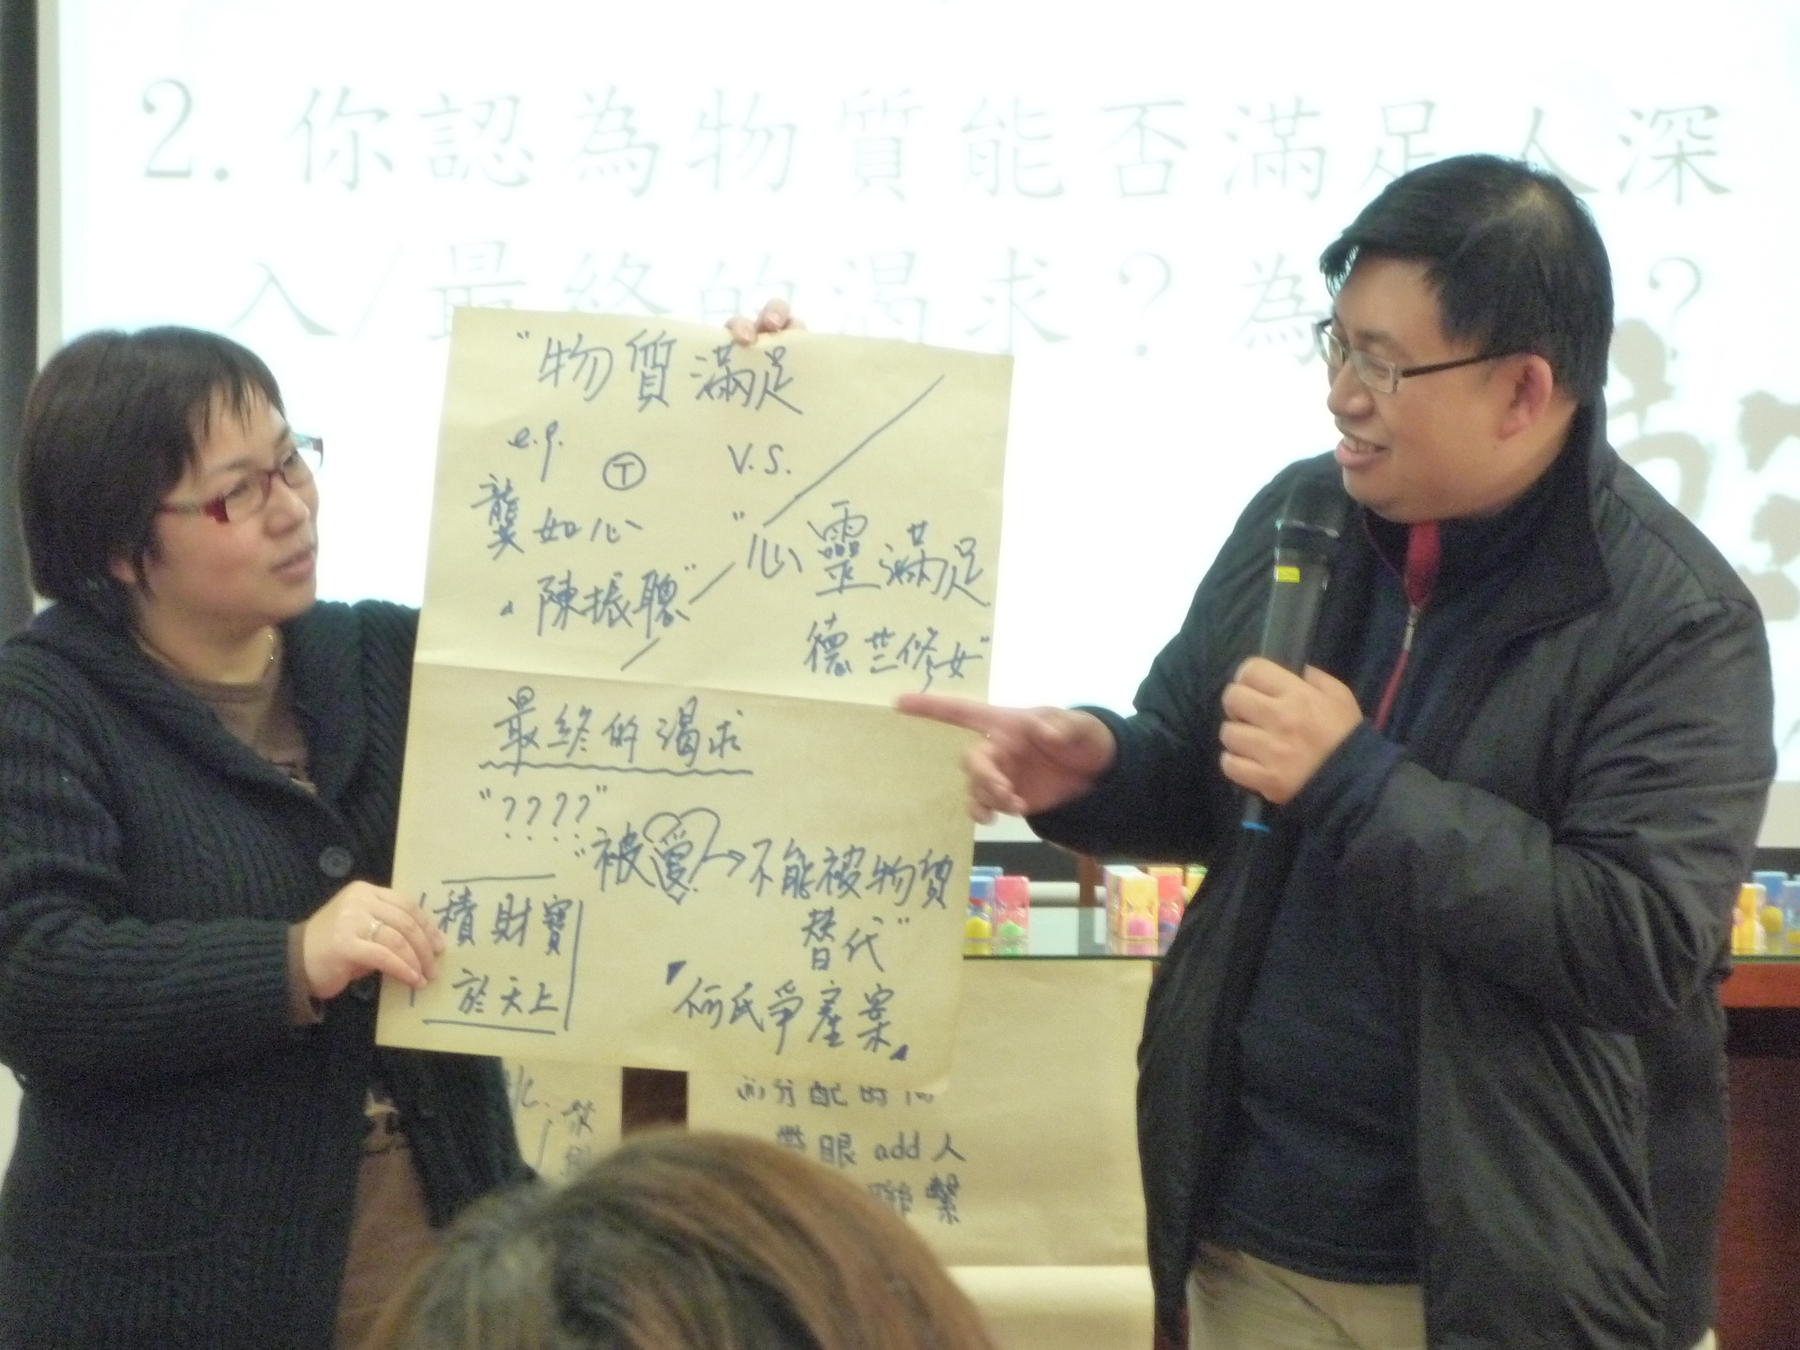 2. 你認為物質能否滿足人深
入/最終的渴求？為 ?
"物質滿足
e.g. Ⓣ V.S.
龔如心
陳振聰"
"心靈滿足
德蘭修女"
最終的渴求
"????"
"被愛→不能被物質
替代"
積財寶
於天上
「何氏爭產案」
分配時
眼 add 人
聯繫